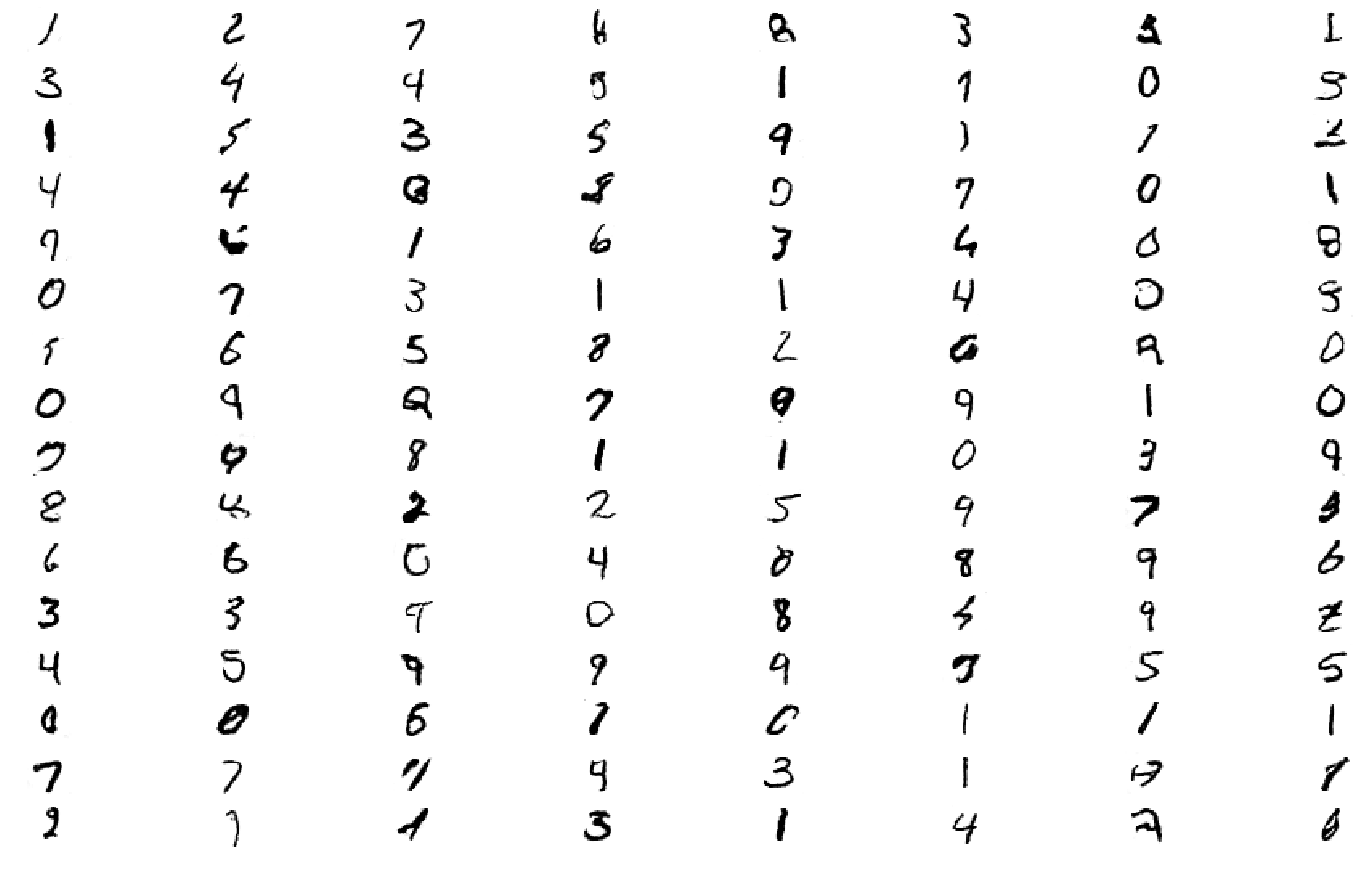 1 2 7 2 3 1
3 4 4 9 1 1 0 9
1 5 3 5 9 1 1 2
4 4 8 8 0 7 0 1
9 6 1 6 3 4 0 8
0 7 3 1 1 4 0 9
6 5 8 2 6 2 0
0 9 2 7 0 9 1 0
7 8 1 1 0 3 9
8 4 2 2 5 9 7 3
6 6 0 4 8 8 9 6
3 3 9 0 8 9 2
4 5 9 9 9 7 5 5
0 0 6 1 0 1 1 1
7 7 9 3 1 7 1
2 1 1 3 1 4 2 6